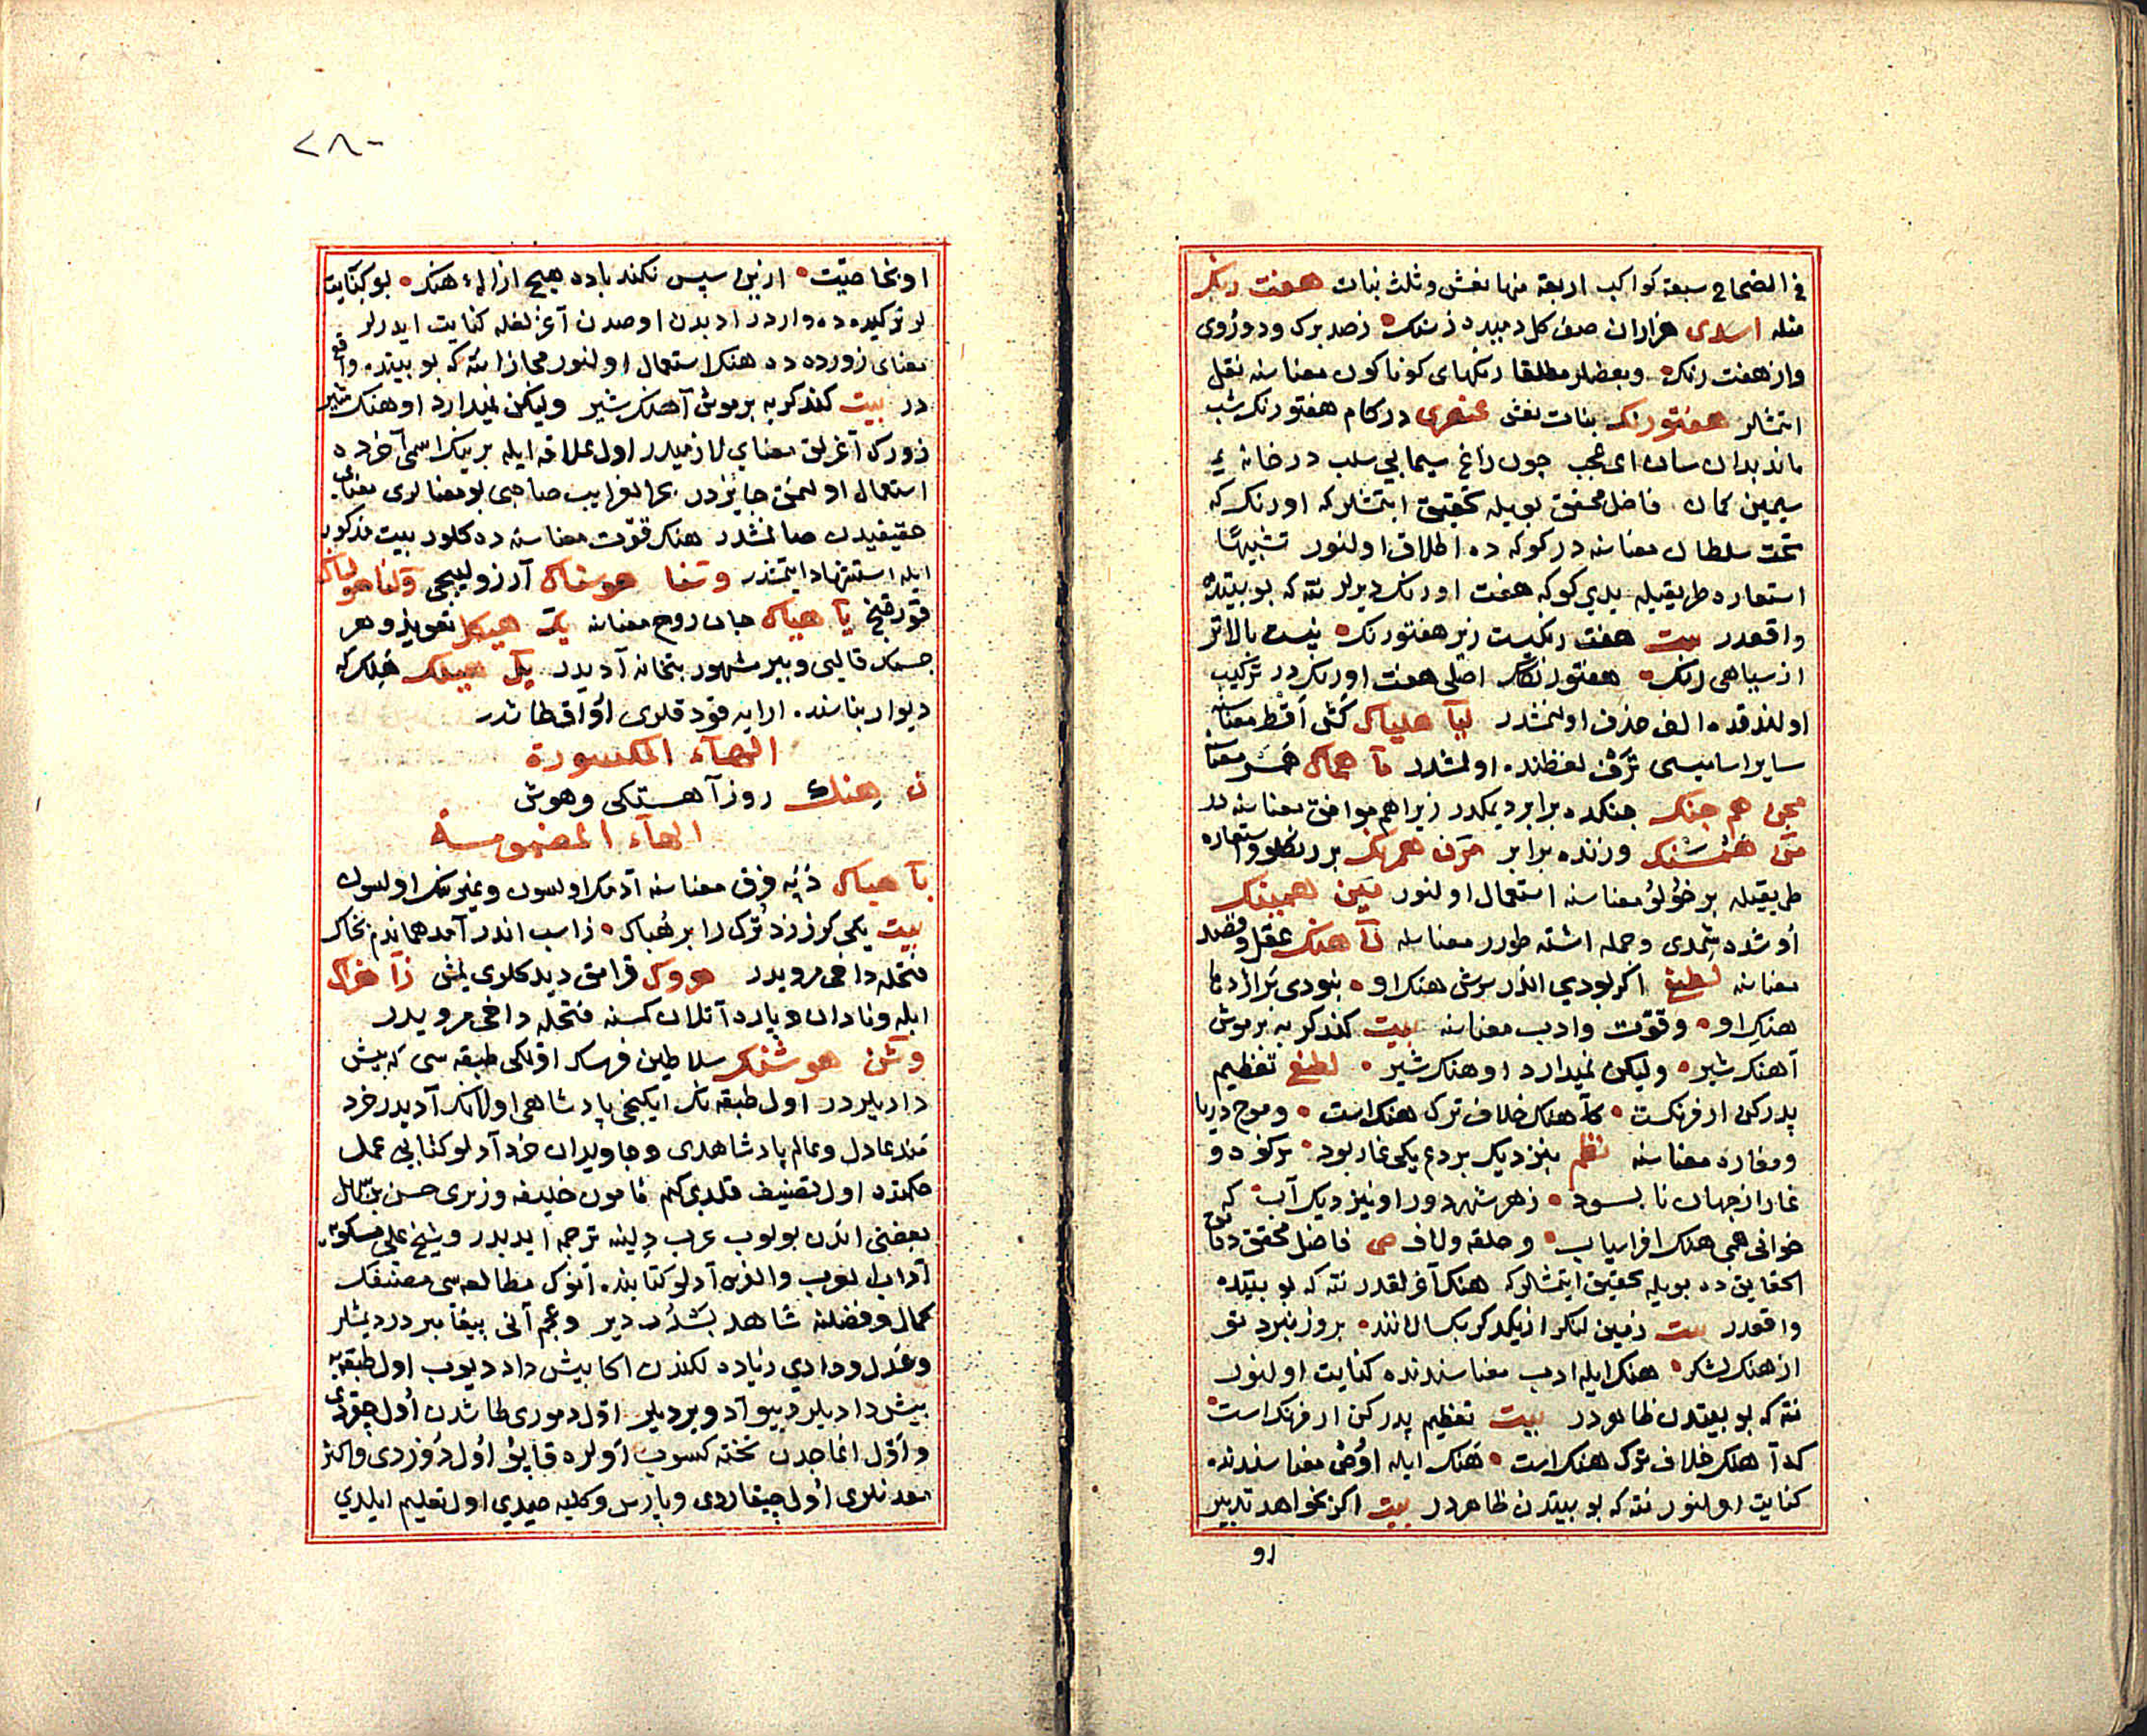 فی الصحاح سبعة کواکب اربعة منها نعش وثلث بنات هفت رنک
مثله اسدی هزاران صف کل دمیده ز سنک زصد برک ودوروی
واز هفت رنک وبعضلر مطلقا رنکهای کوناکون معناسنه نقل
اتمشلر هفتورنک بنات نعش عنصری در کام هفتورنک شب
ماند بدان سان ای عجب چون زاغ سیمابی سلب در خانه
سیمین کمان فاضل محقق بویله تحقیق ایتمشلرکه اورنک که
تخت سلطان معناسنه در کوکه ده اطلاق اولنور تشبیها
استعاره طریقیله یدی کوکه هفت اورنک دیرلر نته که بو بیتده
واقعدر بیت هفت رنکیست زیر هفتورنک نیست بالاتر
از سیاهی رنک هفتورنک اصلی هفت اورنک در ترکیب
اولندقده الف حذف اولنمشدر لیآ هلیاک کش اقط معناسنه
سایر اسامیسی ترف لفظنده اولمشدر مآ هماک همسر معناسنه
هم جنک جنکده برابر دیمکدر زیرا هم موافق معناسنه در
همسنک وزنده برابر مرن همرنک بر رنکلو واستعاره
طریقیله بر خولو معناسنه استعمال اولنور مین همینک
اوشده شمدی وجمله اشته طورر معناسنه نآ هنک عقل وفضل
معناسنه لطیفی اکر بودی اندر سرش هنک او نبودی
هنک او وقوت وادب معناسنه بیت کند کربه برموش
آهنک شیر ولیکن نمیدارد او هنک شیر لطیفی تعظیم
پدرکن ار فرنکست کآهنک خلاف ترک هنک است وموج دریا
ومغاره معناسنه نظم بنزدیک بردع یکی غار بود
غار از جهان نابسود زهر شهر دور او نیز دیک آب که
خوانی همی هنک افراسیاب وحلقه ولاف فاضل محقق دقائق
الحقایق ده بویله تحقیق ایتمشلرکه هنک آغرلقدر نته که بو بیتده
واقعدر بیت زمین لنکر از یکدکر بکسلاند بروز نبرد تو
از هنک لشکر هنک ایله ادب معناسندنده کنایت اولنور
نته که بو بیتدن ظاهردر بیت تعظیم پدرکن ار فرنک است
که آهنک خلاف ترک هنک است هنک ایله معناسندنده
کنایت اولنور نته که بو بیتدن ظاهردر بیت اکر نخواهد تدبیر
او
٢٨٠
او بخاصیت ازین سپس نکند باده هیچ ازاله هنک بو کنایت
لر ترکیده ده واردر ادبدن اوصدن آغرلغله کنایت ایدرلر
معنای زورده ده هنک استعمال اولنور مجازا نته که بو بیتده واقع
در بیت کند کربه برموش آهنک شیر ولیکن نمیدارد او هنک شیر
زورک آغرلق معنایی لازمیدر اول علاقه ایله برینک اسمی آخرده
استعمال اولنمق جایزدر بحر الغرایب صاحبی بو معنالری معنای
حقیقیدن صانمشدر هنک قوت معناسنه ده کلور بیت مذکور
ایله استشهاد ایتمشدر وسنا هوسناک آرزولیجی وقنا هولناک
قورقنج یآ هیاک جان روح معناسنه یک هیکل تعویذ وهر
جسمک قالبی وبیر مشهور بتخانه آدیدر یل هیلک خلک که
دیوار بناسنده آرایه قودقلری اواق طاشدر
الهآء المکسورة
ن هنک روز آهستکی وهوش
الهآء المضمومة
بآ هباک دپه فرق معناسنه آدمک اولسون وغیرینک اولسون
بیت یکی کرز زد ترک را بر هباک ز اسب اندر آمد هماندم بخاک
فتحله داخی مرویدر هروک قرامق دیدکلری یمش زآ هزاک
ابله ونادان وپاره آتلان کمسنه فتحله داخی مرویدر
وشن هوشنک سلاطین فرسک اولکی طبقه سی که پیش
دادیلردر اول طبقه نک ایکنجی پادشاهی اولانک آدیدر خرد
مند عادل وعالم پادشاهدی وجاویدان خرد آدلو کتابی عمل
حکمتده اول تصنیف قلدی کیم مأمون خلیفه وزیری حسن بن سهل
بعضنی اندن بولوب عرب دلینه ترجمه ایدبدر وشیخ علی مسکویه
آداب العرب والفرس آدلو کتابنده آنوک مطالعه سی مصنفک
کمال وفضلنه شاهد بسدر دیر وعجم آنی پیغامبردر دیمشلر
وعدل ودادی زیاده لکندن اکا پیش داد دیوب اول طبقه یه
پیش دادیلر دیو آد ویردیلر اول دموری طاشدن اول چقردی
واول اغاجدن تخته کسوب اولره قاپو اول دوزدی واکثر
معدنلری اول چیقاردی وپارس وکلبه صیدی اول تعلیم ایلدی